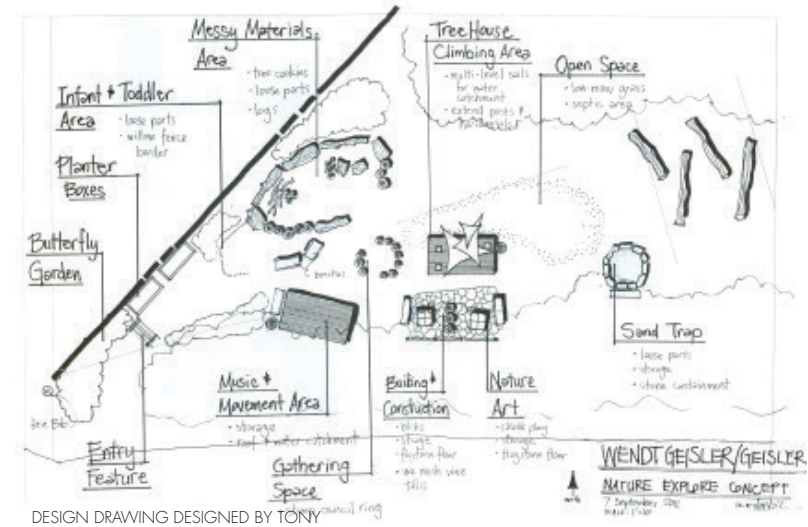 Messy Materials
Area
• tree cookies
• loose parts
• logs
Tree House
Climbing Area
• multi-level sails
for water
catchment
• extend posts &
Open Space
• low mow grass
• septic area
Infant & Toddler
Area
• loose parts
• willow fence
border
Planter
Boxes
Butterfly
Garden
Sand Trap
• loose parts
• storage
• stone containment
Music &
Movement Area
• storage
• roof & water catchment
Building &
Construction
• blocks
• storage
• flagstone floor
Nature
Art
• storage
• flagstone floor
Entry
Feature
Gathering
Space
council ring
WENDT GEISLER/GEISLER
NATURE EXPLORE CONCEPT
7 September
north
DESIGN DRAWING DESIGNED BY TONY